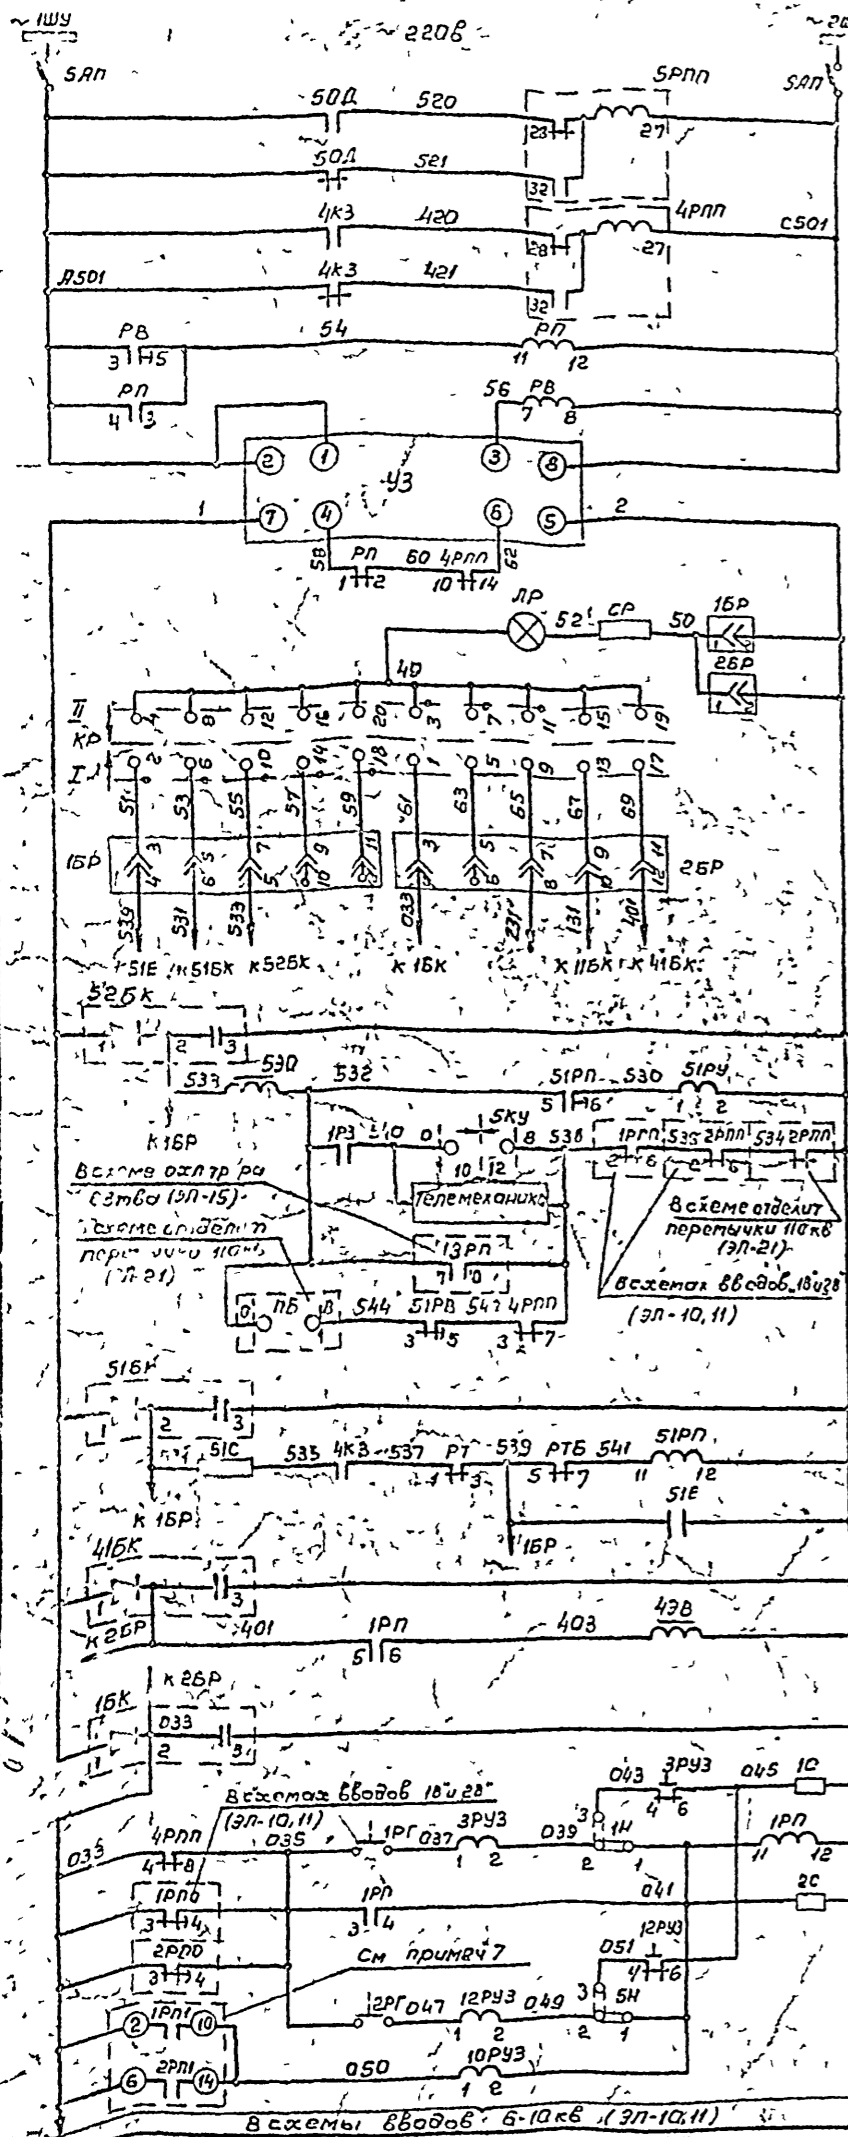 ~ 1ШУ 220В ~ 2Ш
5АП 5АП
5РПП
50Д 520 23 27
50Д 521 32
4РПП
4КЗ 420 28 27 С501
А501 4КЗ 421 32
РВ 54 РП
3 5 11 12
РП 56 РВ
4 3 7 8
2 1 3 8
УЗ
1 7 4 6 5 2
58 РП 60 4РПП 62
1 2 10 14
ЛР 52 СР 50 1БР
1 2
2БР
1 2
40
II 4 8 12 16 20 3 7 11 15 19
КР
I 2 6 10 14 18 1 5 9 13 17
51 53 55 57 59 61 63 65 67 69
1БР 3 5 7 9 11 3 5 7 9 11 2БР
4 6 10 6 8 10 12
539 531 533 033 231 131 401
51Е К 51БК К 52БК К 1БК К 11БК К 41БК
52БК
1 2 3
533 532 51РП 530 51РУ
5 6 1 2
К 1БР
1РЗ 510 0 5КУ 8 538 1РПП 535 2РПП 534 2РПП
10 12 2 6
Телемеханика
В схеме
(ЭЛ-15)
В схеме отделит
перемычки 110кв
(ЭЛ-21)
В схеме отделит
перемычки 110кв
(ЭЛ-21)
13РП
В схемах вводов 1В и 2В
(ЭЛ-10,11)
ПБ 544 51РВ 4РПП
3 5 3 7
51БК
1 2 3
51С 535 4КЗ 537 РТ 539 РТБ 541 51РП
1 3 5 7 11 12
51Е
К 1БР 1БР
41БК
1 3
К 2БР 401 1РП 403 4ЭВ
5 6
К 2БР
1БК 033
1 2 3
043 3РУЗ 045 1С
4 6
В схемах вводов 1В и 2В
(ЭЛ-10,11)
033 4РПП 035 1РГ 037 3РУЗ 039 3 1Н 1РП
4 8 1 2 2 1 11 12
1РПО 1РП 041 2С
3 4 3 4
2РПО См примеч 7 051 12РУЗ
3 4 4 6
2РГ 047 12РУЗ 049 3 5Н
1 2 2 1
2 1РП1 10
6 2РП1 14 050 10РУЗ
1 2
В схемы вводов 6-10кв (ЭЛ-10,11)